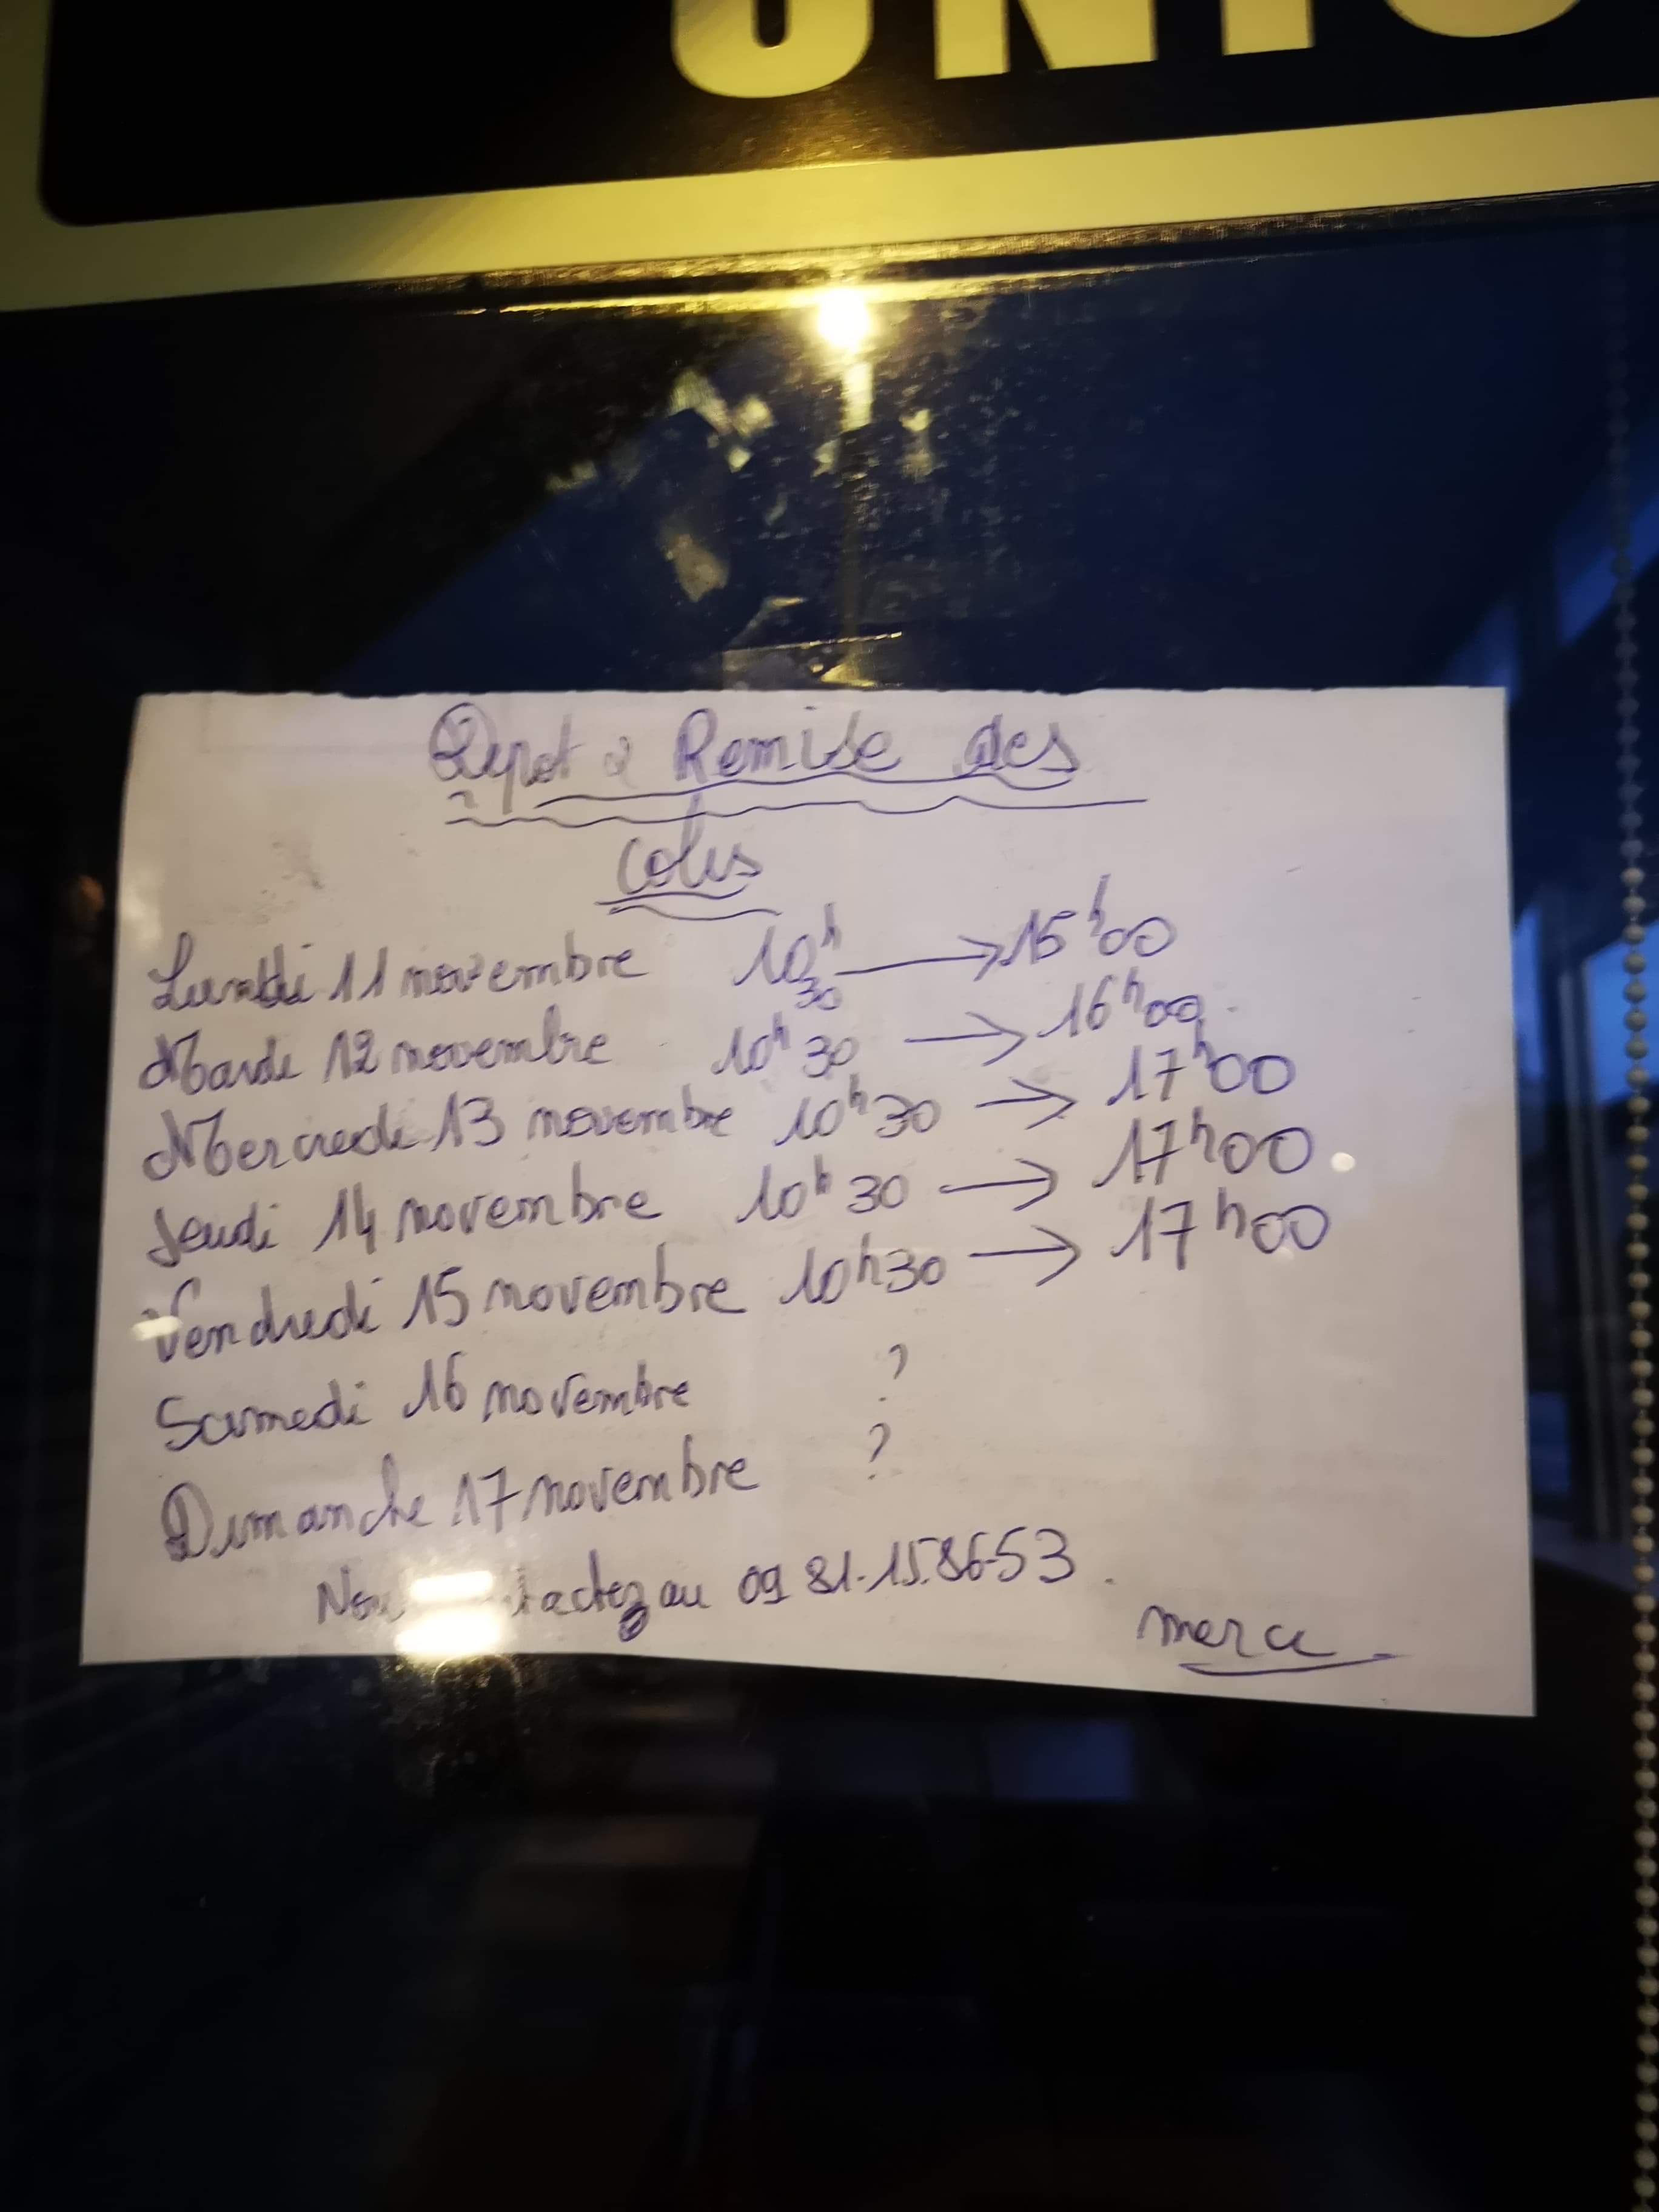 UNIO
Depot & Remise des
colis
Lundi 11 novembre 10h30 → 15h00
Mardi 12 novembre 10h30 → 16h00
Mercredi 13 novembre 10h30 → 17h00
Jeudi 14 novembre 10h30 → 17h00
Vendredi 15 novembre 10h30 → 17h00
Samedi 16 novembre ?
Dimanche 17 novembre ?
au 09 81.15.86-53.
merci